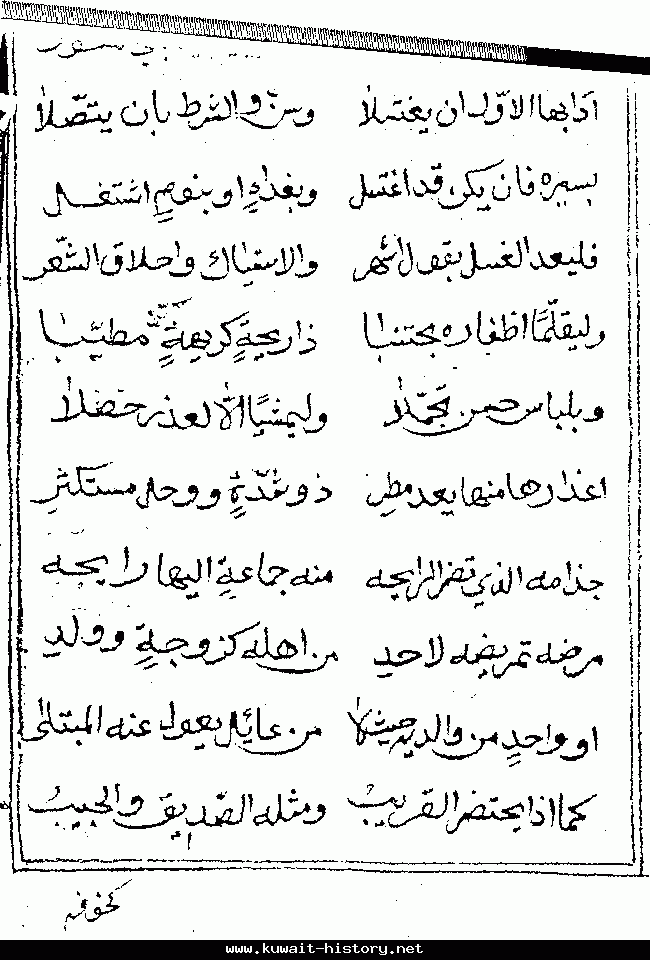 آدابها الاوّل ان يغتسلا وسنّ والشرط بان يتصلا
بسيره فان يكن قد اغتسل وبغذاءٍ او بنومٍ اشتغل
فليعد الغسل بقول اشهر والاستياك واحلاق الشّعر
وليقلّمًا اظفاره مجتنبا ذا ريحةٍ كريهةٍ مطيّبا
وبلباس حسن تجمّلا وليمشيًا الّا لعذر حصلا
اعذارها منها بعد مطر ذو شدّةٍ ووحل مستكثر
جذامه الذي تضر الرايحه منه جماعةٍ اليها رايحه
مرضه تمريضه لاحدِ من اهله كزوجةٍ وولدِ
او واحدٍ من والديه حيث لا من عائل يعول عنه المبتلى
كما اذا يحتضر القريب ومثله الصّديق والحبيبُ
كخوفه
www.kuwait-history.net